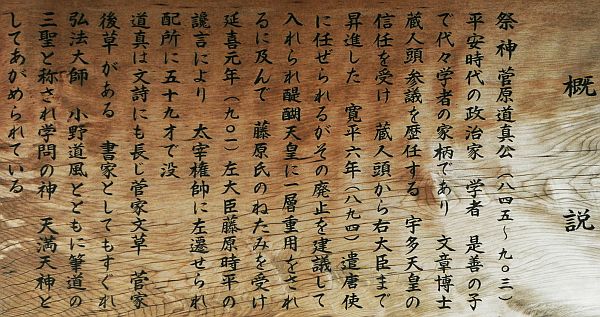 概説
祭神菅原道真公(八四五〜九〇三)
平安時代の政治家 学者 是善の子
で代々学者の家柄であり 文章博士
蔵人頭参議を歴任する 宇多天皇の
信任を受け 蔵人頭から右大臣まで
昇進した 寛平六年(八九四)遣唐使
に任ぜられるがその廃止を建議して
入れられ醍醐天皇に一層重用をされ
るに及んで 藤原氏のねたみを受け
延喜元年(九〇一)左大臣藤原時平の
讒言により 太宰権師に左遷せられ
配所に五十九才で没
道真は文詩にも長じ菅家文草 菅家
後草がある 書家としてもすぐれ
弘法大師 小野道風とともに筆道の
三聖と称され学問の神 天満天神と
してあがめられている